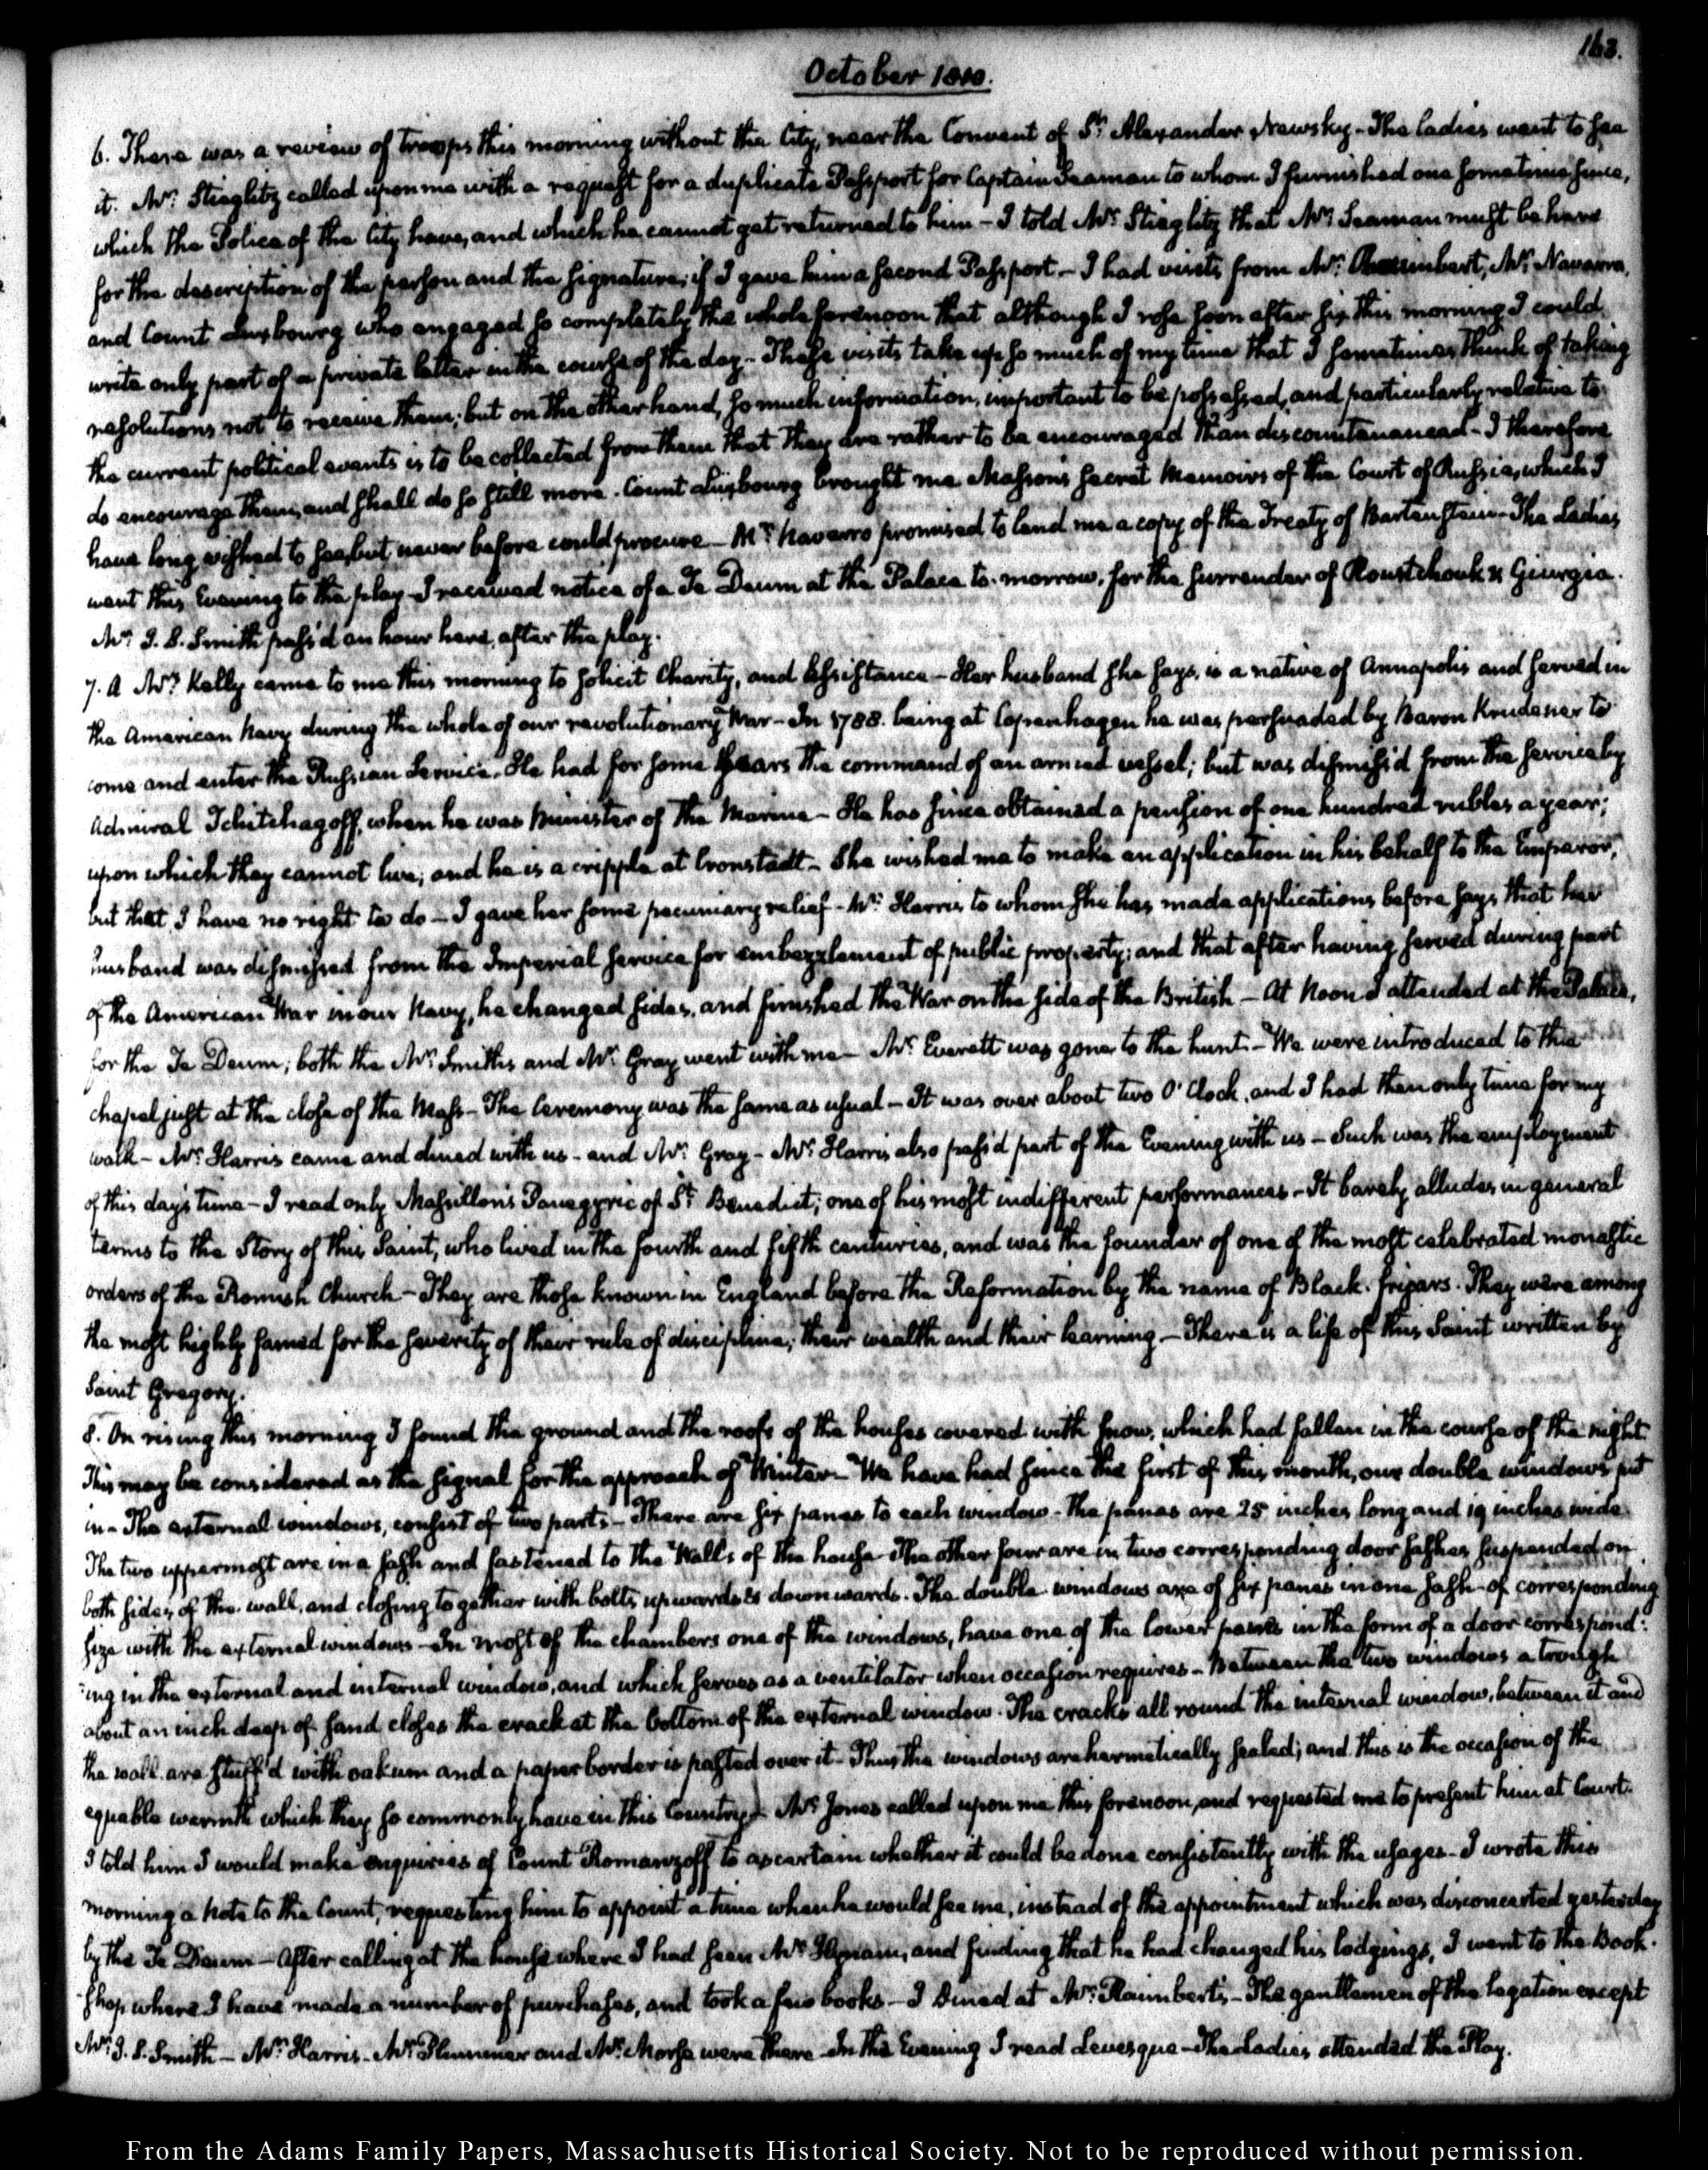 163.
October 1810.
6. There was a review of troops this morning without the City, near the Convent of St. Alexander Newsky. The ladies went to see
it. Mr. Stieglitz called upon me with a request for a duplicate Passport for Captain Seaman to whom I furnished one sometime since,
which the Police of the City have, and which he cannot get returned to him — I told Mr. Stieglitz that Mr. Seaman must be here
for the description of the person and the signature, if I gave him a second Passport. — I had visits from Mr. Raimbert, Mr. Navarro,
and Count Luxbourg who engaged so completely the whole forenoon that although I rose soon after six this morning I could
write only part of a private letter in the course of the day. — These visits take up so much of my time that I sometimes think of taking
resolutions not to receive them; but on the other hand, so much information, important to be possessed, and particularly relative to
the current political events is to be collected from them that they are rather to be encouraged than discountenanced — I therefore
do encourage them, and shall do so still more. Count Luxbourg brought me Masson's secret Memoirs of the Court of Russia, which I
have long wished to see, but never before could procure — Mr. Navarro promised to lend me a copy of the Treaty of Bartenstein — The Ladies
went this Evening to the play — I received notice of a Te Deum at the Palace to-morrow, for the surrender of Roustchouk & Giurgio.
Mr. J. S. Smith pass'd an hour here, after the play.
7. A Mrs. Kelly came to me this morning to solicit Charity, and Assistance — Her husband she says, is a native of Annapolis and served in
the American Navy during the whole of our revolutionary War — In 1788. being at Copenhagen he was persuaded by Baron Krudener to
come and enter the Russian Service. He had for some years the command of an armed vessel; but was dismiss'd from the service by
Admiral Tchitchagoff, when he was Minister of the Marine — He has since obtained a pension of one hundred rubles a year;
upon which they cannot live; and he is a cripple at Cronstadt — She wished me to make an application in his behalf to the Emperor,
but that I have no right to do — I gave her some pecuniary relief — Mr. Harris to whom she has made applications before says that her
husband was dismissed from the Imperial service for embezzlement of public property; and that after having served during part
of the American War in our Navy, he changed sides, and finished the War on the side of the British — At Noon I attended at the Palace,
for the Te Deum; both the Mr. Smiths and Mr. Gray went with me — Mr. Everett was gone to the hunt. — We were introduced to the
chapel just at the close of the Mass — The Ceremony was the same as usual — It was over about two O'Clock, and I had then only time for my
walk — Mr. Harris came and dined with us — and Mr. Gray — Mr. Harris also pass'd part of the Evening with us — Such was the employment
of this day's time — I read only Massillon's Panegyric of St. Benedict; one of his most indifferent performances — It barely alludes in general
terms to the Story of this Saint, who lived in the fourth and fifth centuries, and was the founder of one of the most celebrated monastic
orders of the Romish Church — They are those known in England before the Reformation by the name of Black-friears. They were among
the most highly famed for the severity of their rule of discipline; their wealth and their learning — There is a life of this Saint written by
Saint Gregory.
8. On rising this morning I found the ground and the roofs of the houses covered with snow, which had fallen in the course of the night.
This may be considered as the signal for the approach of Winter — We have had since the first of this month, our double windows put
in — The external windows, consist of two parts — There are six panes to each window — the panes are 25 inches long and 19 inches wide.
The two uppermost are in a sash and fastened to the Walls of the house — The other four are in two corresponding door sashes suspended on
both sides of the wall, and closing together with bolts upwards & downwards. The double windows are of six panes in one sash — of corresponding
size with the external windows — In most of the chambers one of the windows, have one of the lower panes in the form of a door correspond:
:ing in the external and internal window, and which serves as a ventilator when occasion requires — Between the two windows a trough
about an inch deep of sand closes the crack at the bottom of the external window. The cracks all round the internal window, between it and
the wall are stuff'd with oakum and a paper border is pasted over it — Thus the windows are hermetically sealed; and this is the occasion of the
equable warmth which they so commonly have in this Country. — Mr. Jones called upon me this forenoon, and requested me to present him at Court.
I told him I would make enquiries of Count Romanzoff to ascertain whether it could be done consistently with the usages — I wrote this
morning a Note to the Count, requesting him to appoint a time when he would see me, instead of the appointment which was disconcerted yesterday
by the Te Deum — After calling at the house where I had seen Mr. and finding that he had changed his lodgings, I went to the Book-
shop where I have made a number of purchases, and took a few books — I Dined at Mr. Raimbert's — The gentlemen of the legation except
Mr. J. S. Smith — Mr. Harris. Mr. Plummer and Mr. Morse were there — In the Evening I read Levesque — The Ladies attended the Play.
From the Adams Family Papers, Massachusetts Historical Society. Not to be reproduced without permission.